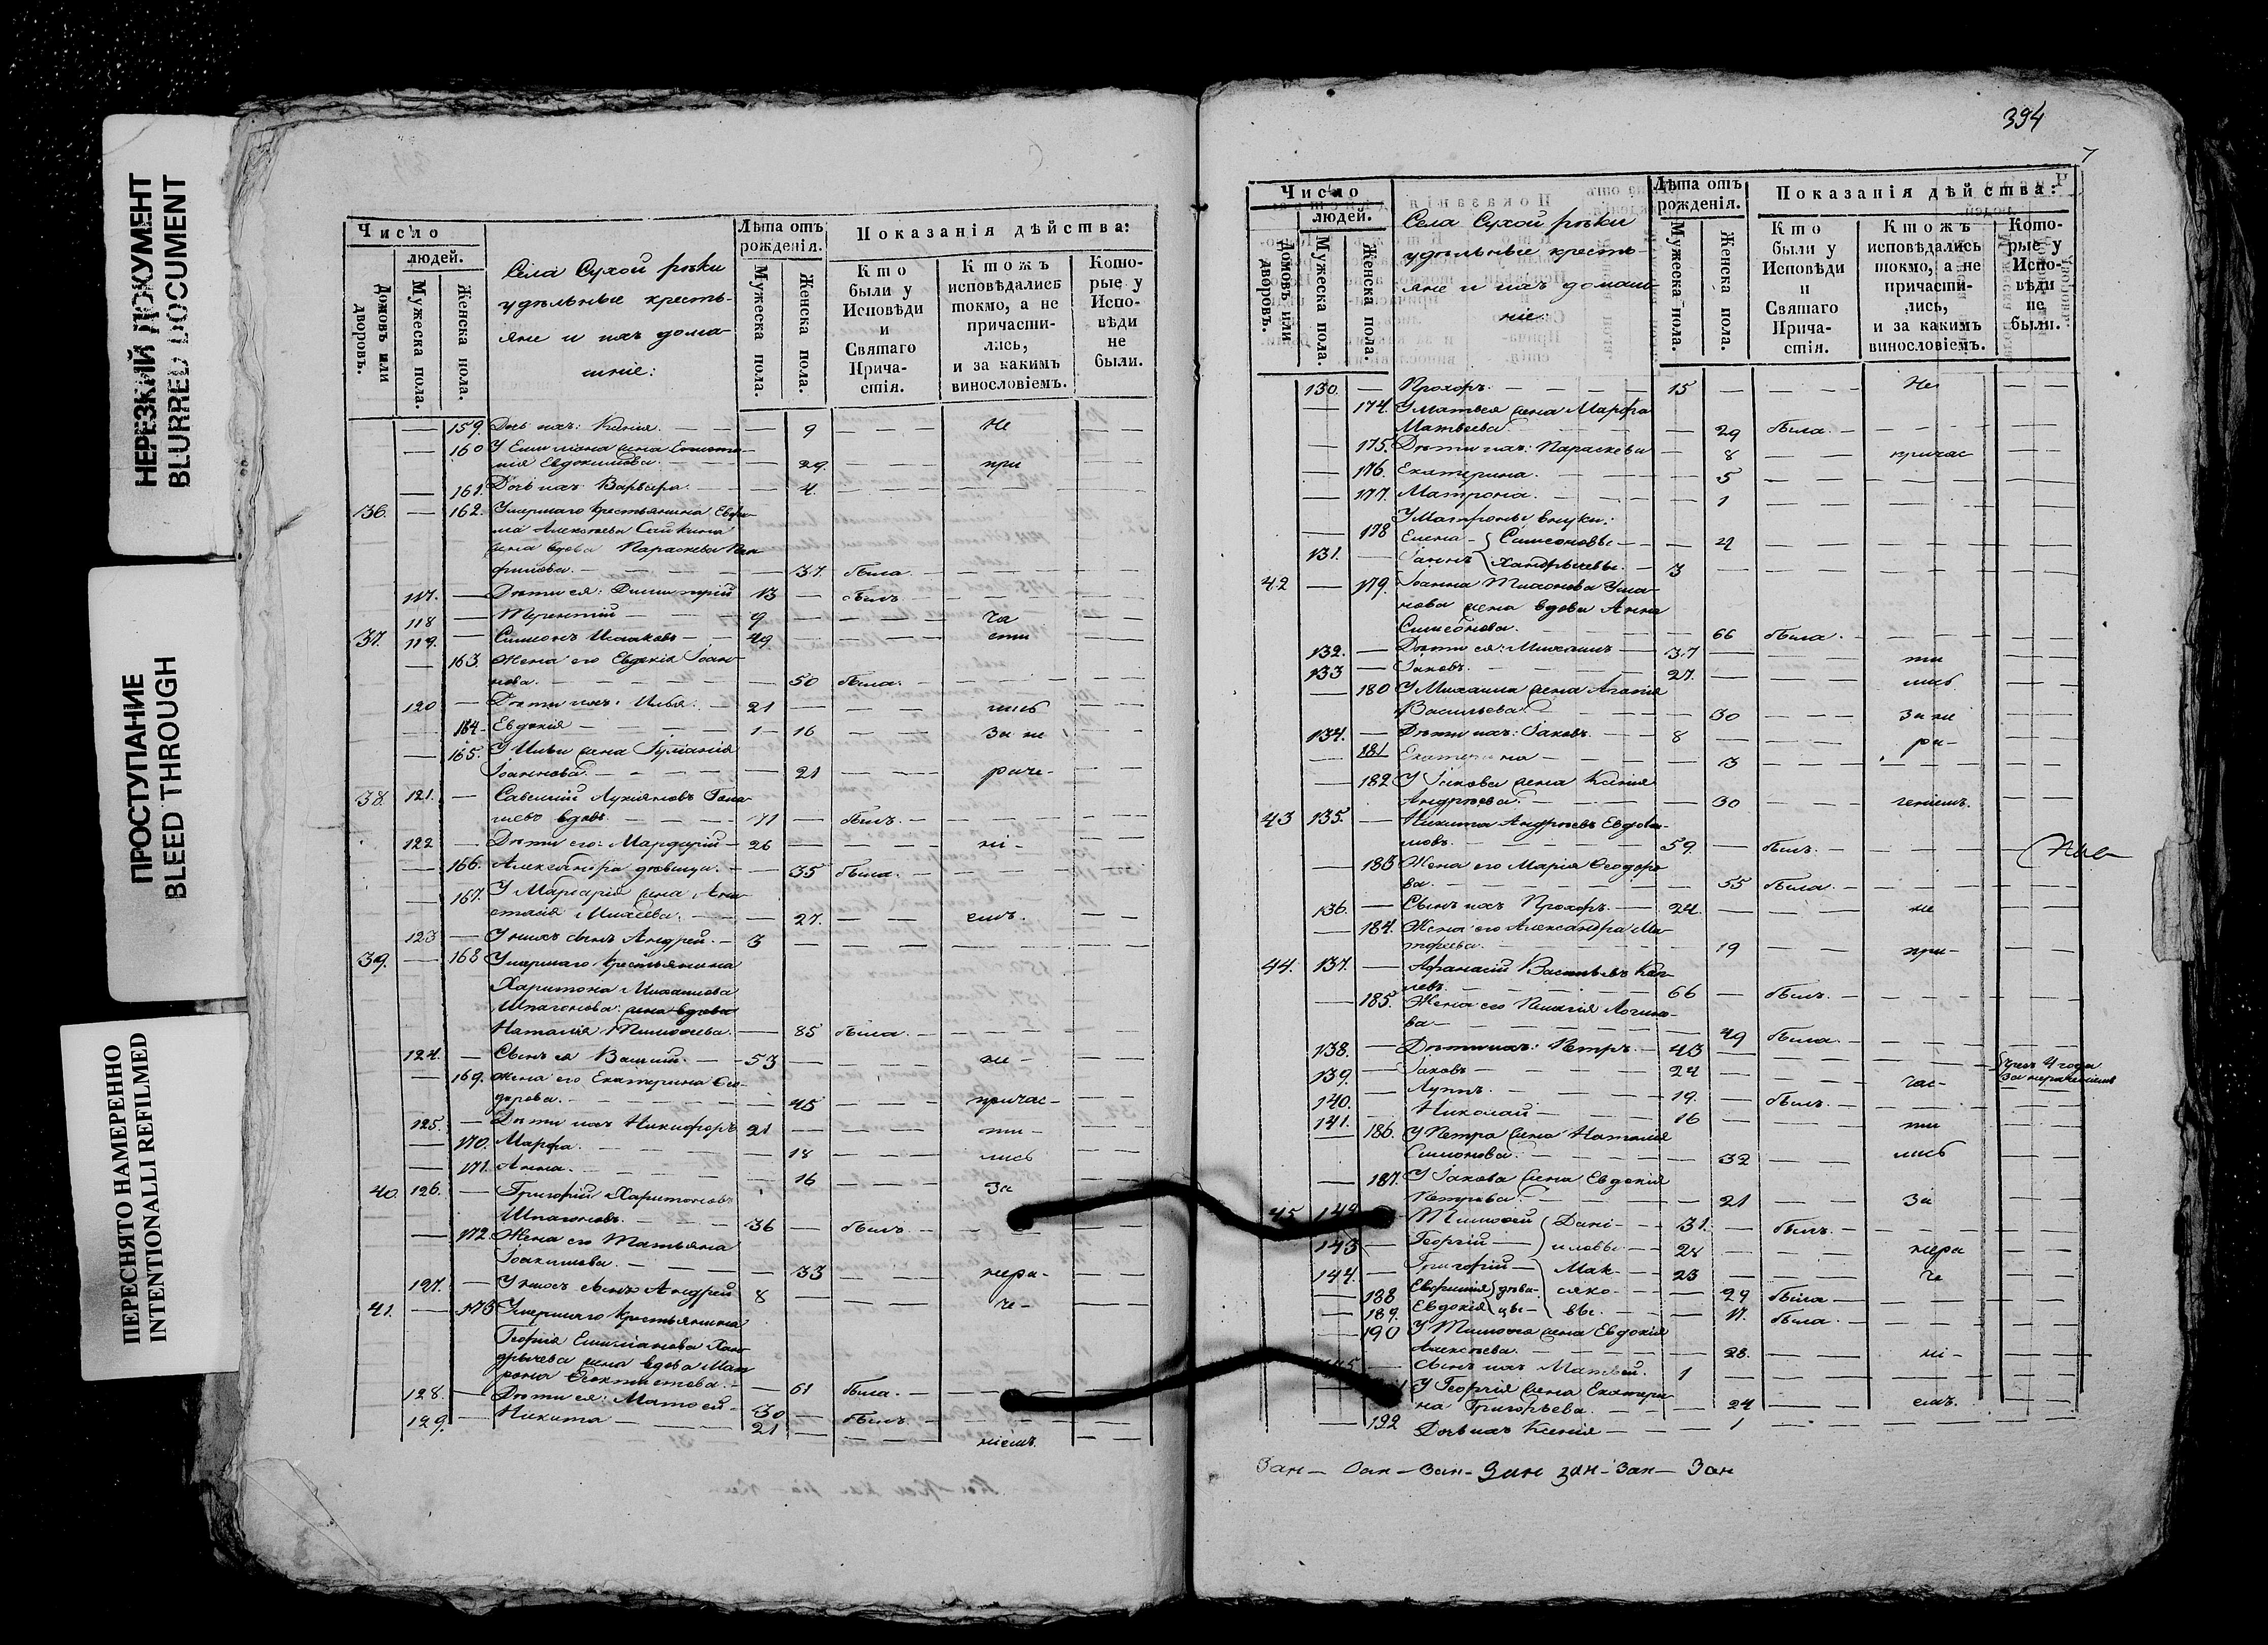 НЕРЕЗКИЙ ДОКУМЕНТ
BLURRED DOCUMENT
ПРОСТУПАНИЕ
BLEED THROUGH
ПЕРЕСНЯТО НАМЕРЕННО
INTENTIONALLI REFILMED
Число
людей.
Домовъ или дворовъ.
Мужеска пола.
Женска пола.
Села Сухой рѣки
удѣльные кресть-
яне и ихъ дома-
шніе:
Лѣта отъ рожденія.
Мужеска пола.
Женска пола.
Показанія дѣйства:
Кто были у Исповѣди и Святаго Прича-стія.
Ктожъ исповѣдались токмо, а не причасти-лись, и за какимъ винословіемъ.
Кото-рые у Испо-вѣди не были.
— 159. Дочь ихъ: Ксенія. — 9 — Не
— 160 У Емиліана жена
Евдокимова. — 29. — при
— 161. Дочь ихъ Варвара. — 4.
36. — 162. Умершаго крестьянина
Алексѣева
жена вдова Параскева Пан-
филова. — 37. была.
117. — Дѣти ея: Димитрій 13 — былъ
118 — Терентій 9 — ча
37. 119. — Симеонъ Исааковъ 49 — сти
— 163. Жена его Евдокія Іоан-
нова. — 50 была.
120 — Дѣти ихъ: Илья. 21 — лись
— 164. Евдокія — 16 — за не
— 165. У Ильи жена Іуліанія
Іоаннова. — 21 — раче-
38. 121. — Савелий Лукіяновъ
вдовъ 71 — былъ.
122 — Дѣти его: Мардарій 26 — ні-
— 166. Александра дѣвица. — 35 была.
— 167. У Мардарія жена Ана-
стасія Михеева. — 27. — емъ.
123 — У нихъ сынъ Андрей. 3
39. — 168 Умершаго крестьянина
Харитона Михайлова
Шпагонова: жена вдова
Наталія Тимоѳеева. — 85 была.
124. — Сынъ ея Василий. 53 — не-
— 169. Жена его Екатерина Ѳео-
дорова. — 45 — причас-
125. — Дѣти ихъ Никифоръ 21 — ти-
— 170. Марфа. — 18 — лись
— 171. Анна. — 16 — за
40. 126. — Григорій Харитоновъ
Шпагоновъ. 36 — былъ
— 172. Жена его Татьяна
Іоакимова. — 33 — нера-
127. — У нихъ сынъ Андрей 8 — че-
41. — 173 Умершаго крестьянина
Георгія Емиліанова Хан-
дрычева жена вдова Мат-
рона Ѳеоктистова. — 61 была.
128. — Дѣти ея: Матѳей 30 — былъ
129. — Никита 21 — ніемъ.
394
7
Число
людей.
Домовъ или дворовъ.
Мужеска пола.
Женска пола.
Села Сухой рѣки
удѣльные кресть-
яне и ихъ домаш-
ніе:
Лѣта отъ рожденія.
Мужеска пола.
Женска пола.
Показанія дѣйства:
Кто были у Исповѣди и Святаго Прича-стія.
Ктожъ исповѣдались токмо, а не причасти-лись, и за какимъ винословіемъ.
Кото-рые у Испо-вѣди не были.
130. — Прохоръ. 15 — Не
— 174. У Матѳея жена Марфа
Матвеева — 29 была.
— 175. Дѣти ихъ: Параскева — 8 — причас
— 176. Екатерина. — 5
— 177. Матрона. — 1
У Матроны внуки:
— 178 Елена Симеоновы — 4
131. — Іаннъ Хандрычевы. 3
42 — 179. Іоанна Тихонова
жена вдова Анна
Симеонова. — 66 была.
132. — Дѣти ея: Михаилъ 37 — ти
133 — Іаковъ. 27. — лись
— 180 У Михаила жена Агаѳія
Васильева. — 30 — за не
134. — Дѣти ихъ: Іаковъ. 8 — ра-
— 181 Екатерина — 3
— 182 У Іакова жена Ксенія
Андрѣева. — 30 — ченіемъ.
43 135. — Никита Андрѣевъ Евдоки-
мовъ. 59. — былъ.
— 183 Жена его Марія Ѳеодоро
ва. — 55 была.
136. — Сынъ ихъ Прохоръ. 24. — не
— 184. Жена его Александра Ма-
тфеева. — 19 — при-
44. 137. — Афанасій Васильевъ
66 — былъ.
— 185. Жена его Пелагія Логино-
ва — 49 была.
138. — Дѣти ихъ: Петръ. 43 — 4 года
139. — Іаковъ 24 — час-
140. — Луппъ. 19. — былъ.
141. — Николай 16 — ти
— 186. У Петра жена Наталія
Симонова. — 32 — лись
— 187. У Іакова жена Евдокія
Петрова. — 21 — За
45 142 Тимоѳей Дані- 31. — былъ.
143 — Георгій иловы 28 — нера
144. — Григорій Мак- 23 — че
— 188 Евфимія дѣви- сяко- — 29 была
— 189. Евдокія цы вы. — 17. была.
— 190 У Тимоѳея жена Евдокія
Алексѣева. — 28. — ні-
145 — Сынъ ихъ Матвей. 1
У Георгія жена Екатери-
на Григорьева. — 24 — емъ.
— 192 Дочь ихъ Ксенія — 1
Зан— Зан—Зан—Зан зан—Зан—Зан